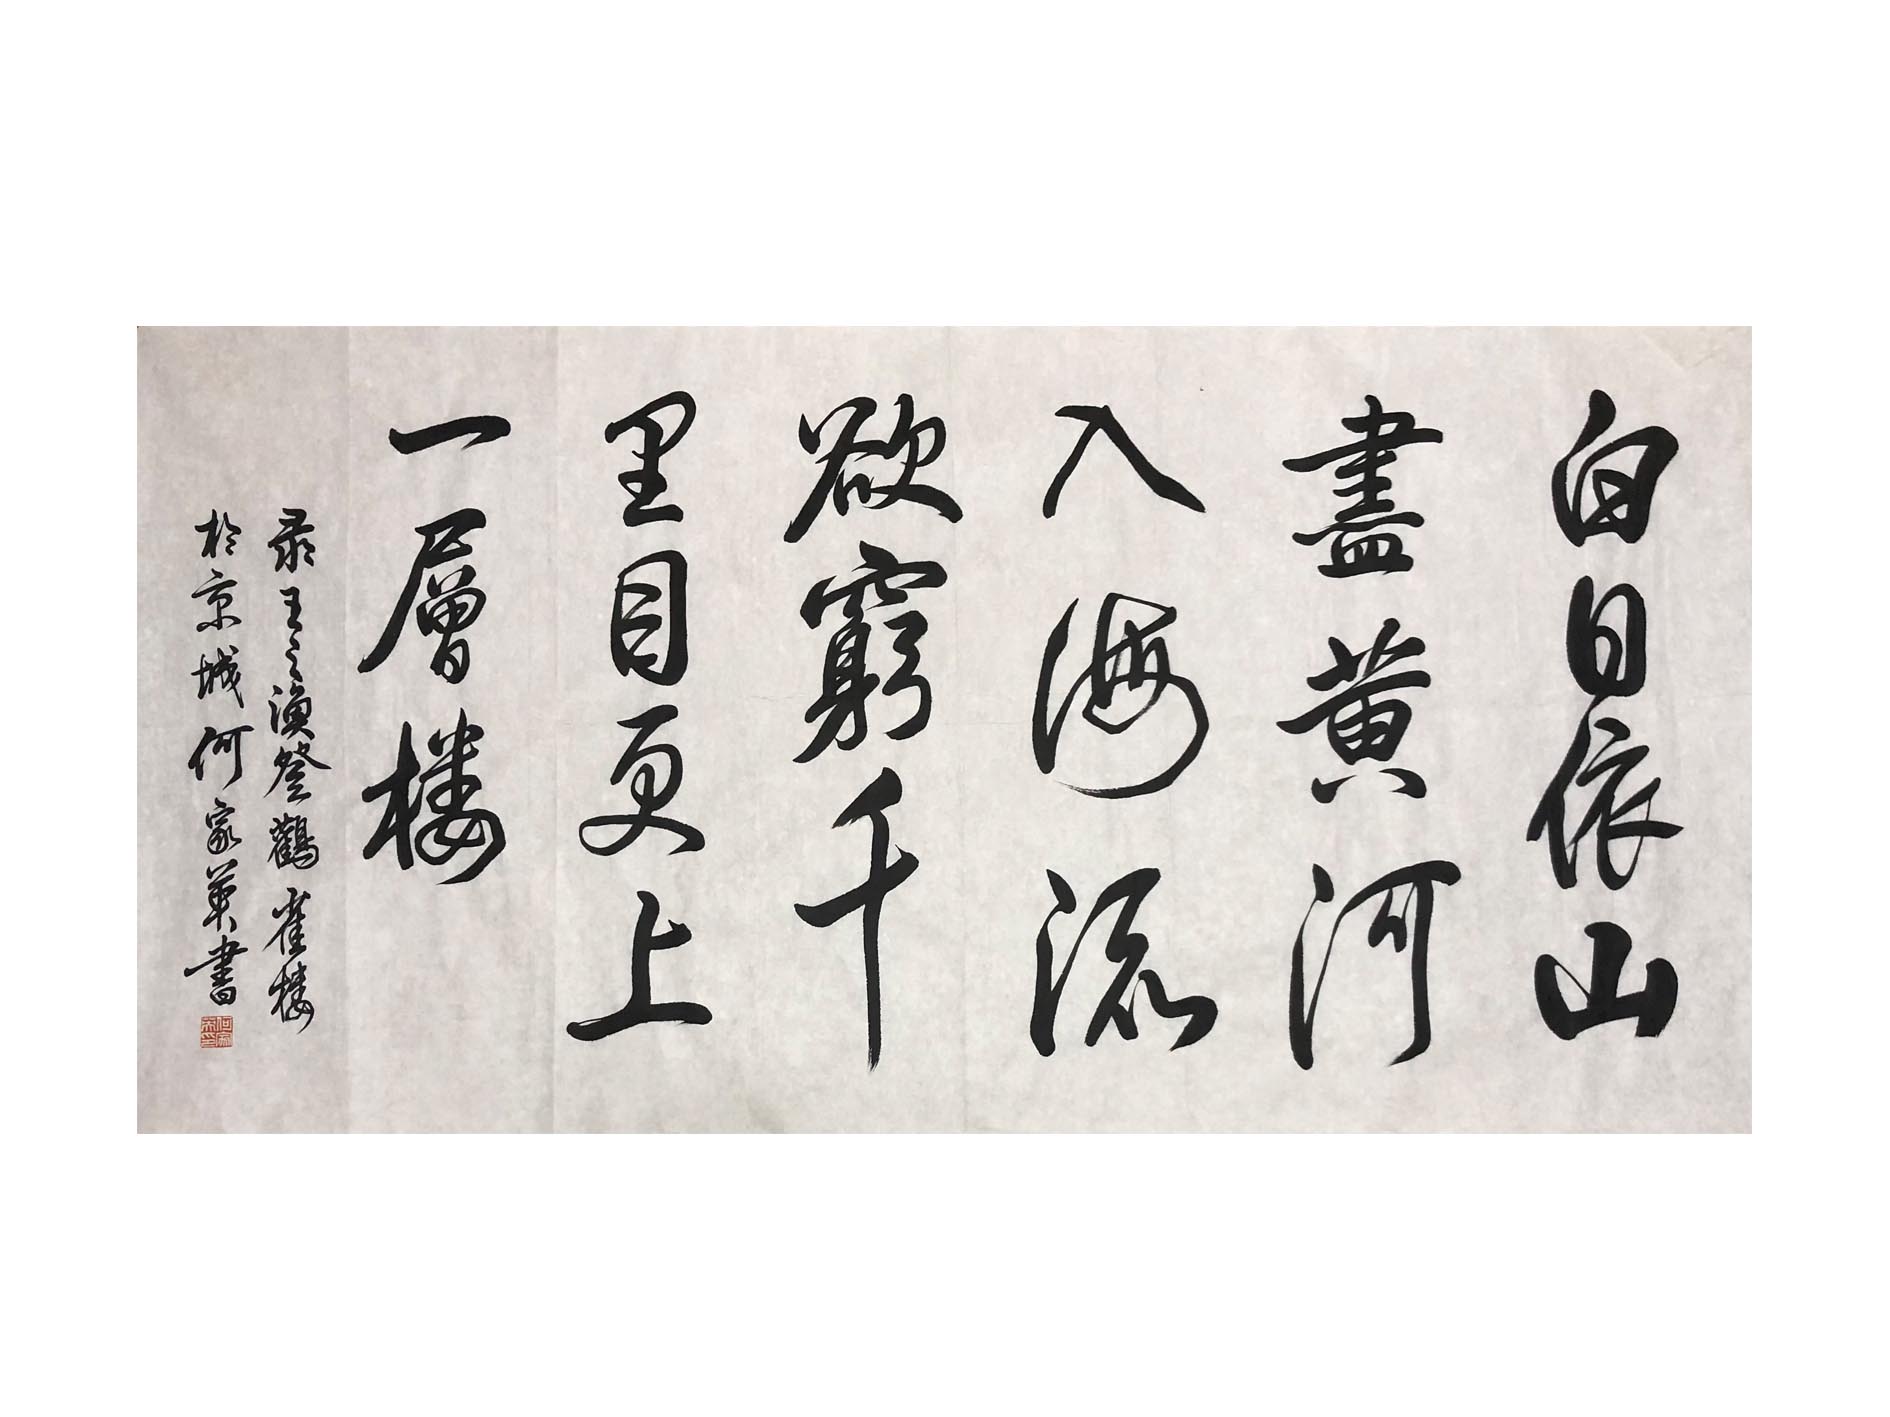 白日依山
盡黄河
入海流
欲窮千
里目更上
一層楼
录王之渙登鸛雀楼
於京城何家英書
何家英印